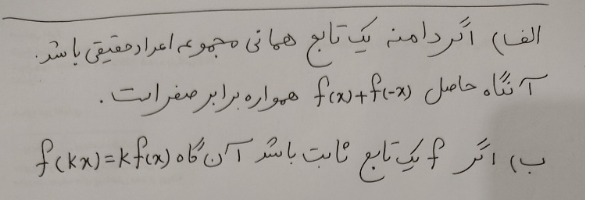 الف) اگر دامنه یک تابع همانی مجموعه اعداد حقیقی باشد.
آنگاه حاصل f(x)+f(-x) همواره برابر صفر است.
ب) اگر f یک تابع ثابت باشد آن گاه f(kx)=kf(x)